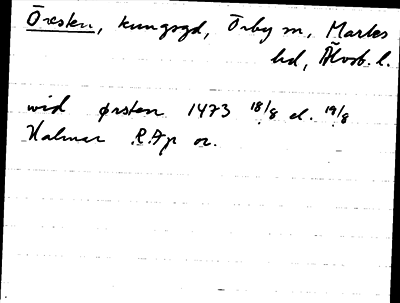 Öresten, kungsgd, Örby sn, Marks
hd, Älvsb. l.
wid ørsten 1473 18/8 el. 19/8
Kalmar RAp or.